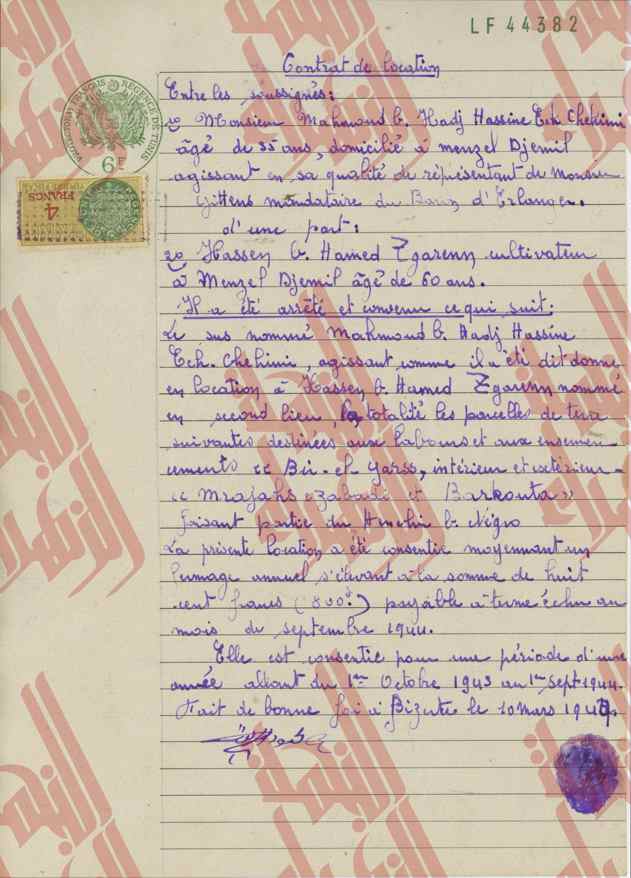 LF 44382
Contrat de location
Entre les soussignés:
1º Monsieur Mahmoud b. Hadj Hassine Ech Chehimi
âgé de 55 ans, domicilié à menzel Djemil
agissant en sa qualité de représentant de Monsieur
Gittens mandataire du Baron d'Erlanger.
d'une part:
2º Hassen b. Hamed Zgarenn cultivateur
à Menzel Djemil âgé de 60 ans.
Il a été arrêté et convenu ce qui suit:
Le sus nommé Mahmoud b. Hadj Hassine
Ech. Chehimi, agissant comme il a été dit donne,
en location à Hassen b. Hamed Zgarenn nommé
en second lieu, la totalité les parcelles de terre
suivantes destinées aux labours et aux ensemen-
cements "Bir-el-Garss, intérieur et extérieur-
"Mrajahs Zabadi et Barkouta"
faisant partie du Henchir b. Négro
La présente location a été consentie moyennant un
fermage annuel s'élevant à la somme de huit
cent francs (800f) payable à terme échu au
mois de septembre 1944.
Elle est consentie pour une période d'une
année allant du 1er Octobre 1943 au 1er Sept 1944.
Fait de bonne foi à Bizerte le 10 mars 194
PROTECTORAT FRANÇAIS
RÉGENCE DE TUNIS
6F
4
FRANCS